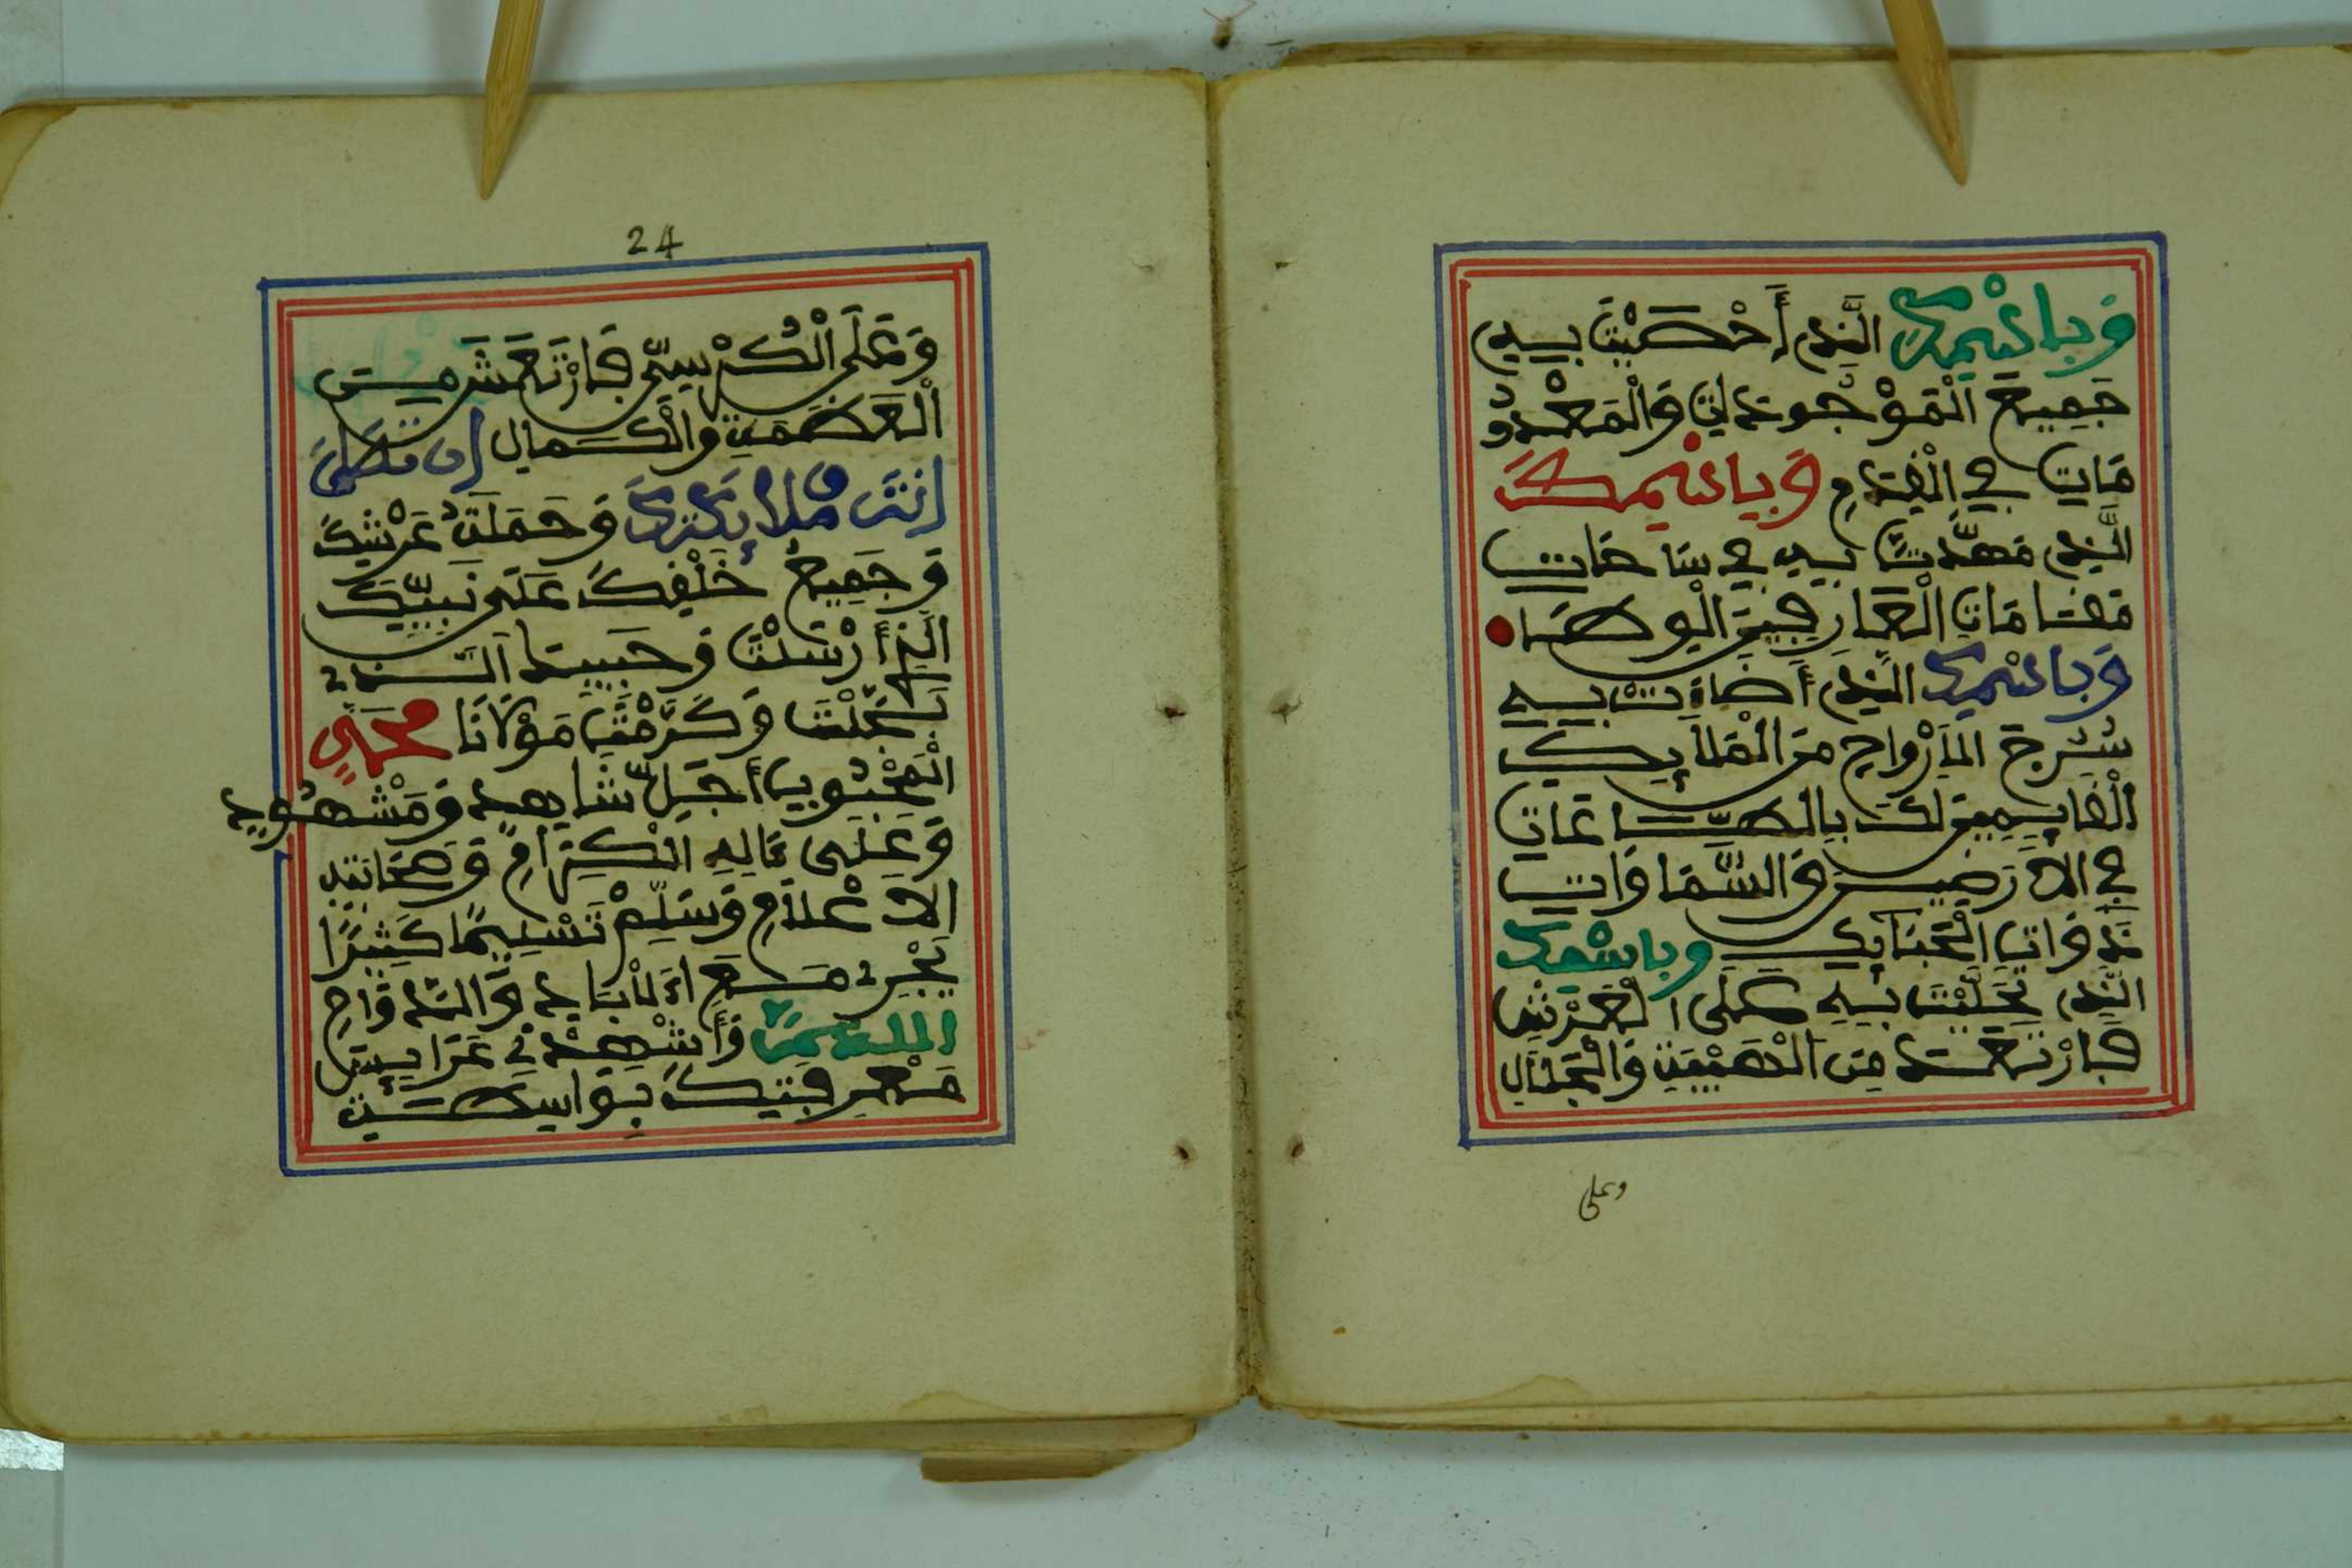 وَبِاسْمِكَ الَّذِي أَحْصَيْتَ بِهِ
جَمِيعَ الْمَوْجُودَاتِ وَالْمَعْدُو
مَاتِ فِي الْقِدَمِ وَبِاسْمِكَ
الَّذِي مَهَّدْتَ بِهِ فِي سَاحَاتِ
مَقَامَاتِ الْعَارِفِينَ الْوِطَا
وَبِاسْمِكَ الَّذِي أَضَاءَتْ بِهِ
سُرُجُ الْأَرْوَاحِ مِنَ الْمَلَائِكَةِ
الْقَائِمِينَ لَكَ بِالطَّاعَاتِ
فِي الْأَرَضِينَ وَالسَّمَاوَاتِ
ذَوَاتِ الْحَبَائِكِ وَبِاسْمِكَ
الَّذِي تَجَلَّيْتَ بِهِ عَلَى الْعَرْشِ
فَارْتَعَدَ مِنَ الْهَيْبَةِ وَالْجَلَالِ
وعلى
24
وَعَلَى الْكُرْسِيِّ فَارْتَعَشَ مِنَ
الْعَظَمَةِ وَالْكَمَالِ أَن تُصَلِّيَ
أَنتَ وَمَلَائِكَتُكَ وَحَمَلَةُ عَرْشِكَ
وَجَمِيعُ خَلْقِكَ عَلَى نَبِيِّكَ
الَّذِي أَرْسَلْتَ وَحَبِيبِكَ الَّذِي
بَجَّلْتَ وَكَرَّمْتَ مَوْلَانَا مُحَمَّدٍ
الْمَحْبُوبِ أَجَلِّ شَاهِدٍ وَمَشْهُودٍ
وَعَلَى ءَالِهِ الْكِرَامِ وَصَحَابَتِهِ
الْأَعْلَامِ وَسَلِّمْ تَسْلِيمًا كَثِيرًا
يَجْرِي مَعَ الْآبَادِ وَالدَّوَامِ
اللَّهُمَّ وَأَشْهِدْنِي عَرَائِسَ
مَعْرِفَتِكَ بِوَاسِطَةِ